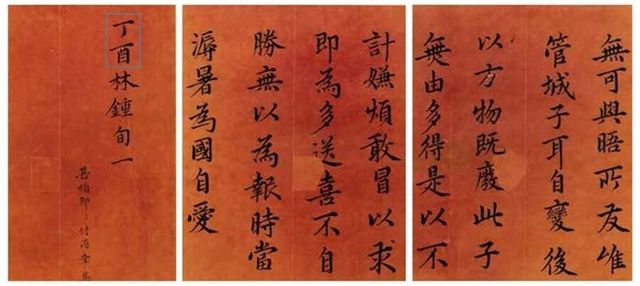 無可與晤所友惟
管城子耳自變後
以方物既廢此子
無由多得是以不
計嫌煩敢冒以求
即為多送喜不自
勝無以為報時當
溽暑為國自愛
丁酉林鍾旬一